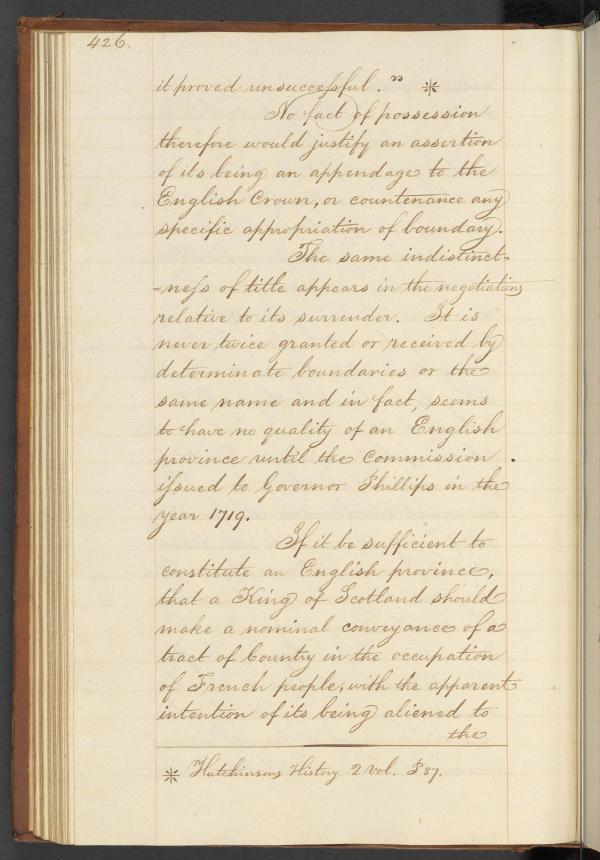 426.
it proved unsuccessful." *
No fact of possession
therefore would justify an assertion
of its being an appendage to the
English Crown, or countenance any
specific appropriation of boundary.
The same indistinct=
=ness of title appears in the negotiations
relative to its surrender. It is
never twice granted or received by
determinate boundaries or the
same name and in fact, seems
to have no quality of an English
province until the Commission
issued to Governor Phillips in the
year 1719.
If it be sufficient to
constitute an English province,
that a King of Scotland should
make a nominal conveyance of a
tract of Country in the occupation
of French people, with the apparent
intention of its being aliened to
the
* Hutchinsons History 2 vol. P 87.